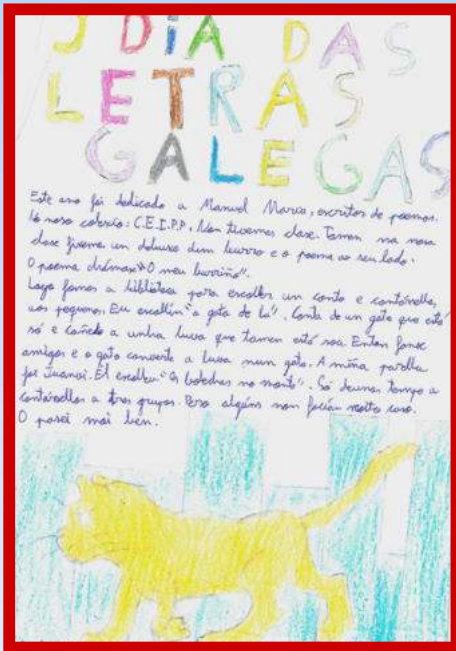 O DÍA DAS
LETRAS
GALEGAS
Este ano foi dedicado a Manuel María, escritor de poemas.
No noso colexio: C.E.I.P.P. Non tivemos clase. Tamen na nosa
clase fixemos un debuxo dun burro e o poema ao seu lado.
O poema chámase "O meu burriño".
Logo fomos a biblioteca para escoller un conto e contárnolles
aos pequenos. Eu escollín "a gata de lá". Conta de un gato que está
só e coñece a unha lúa que tamen está soa. Enton fanse
amigos e o gato converte a lúa nun gato. A miña parella
foi Juanxi. El escolleu "Os bolechas no monte". Só deunos tempo a
contárnollos a tres grupos. Pero algúns non facían moito caso.
O pasei moi ben.